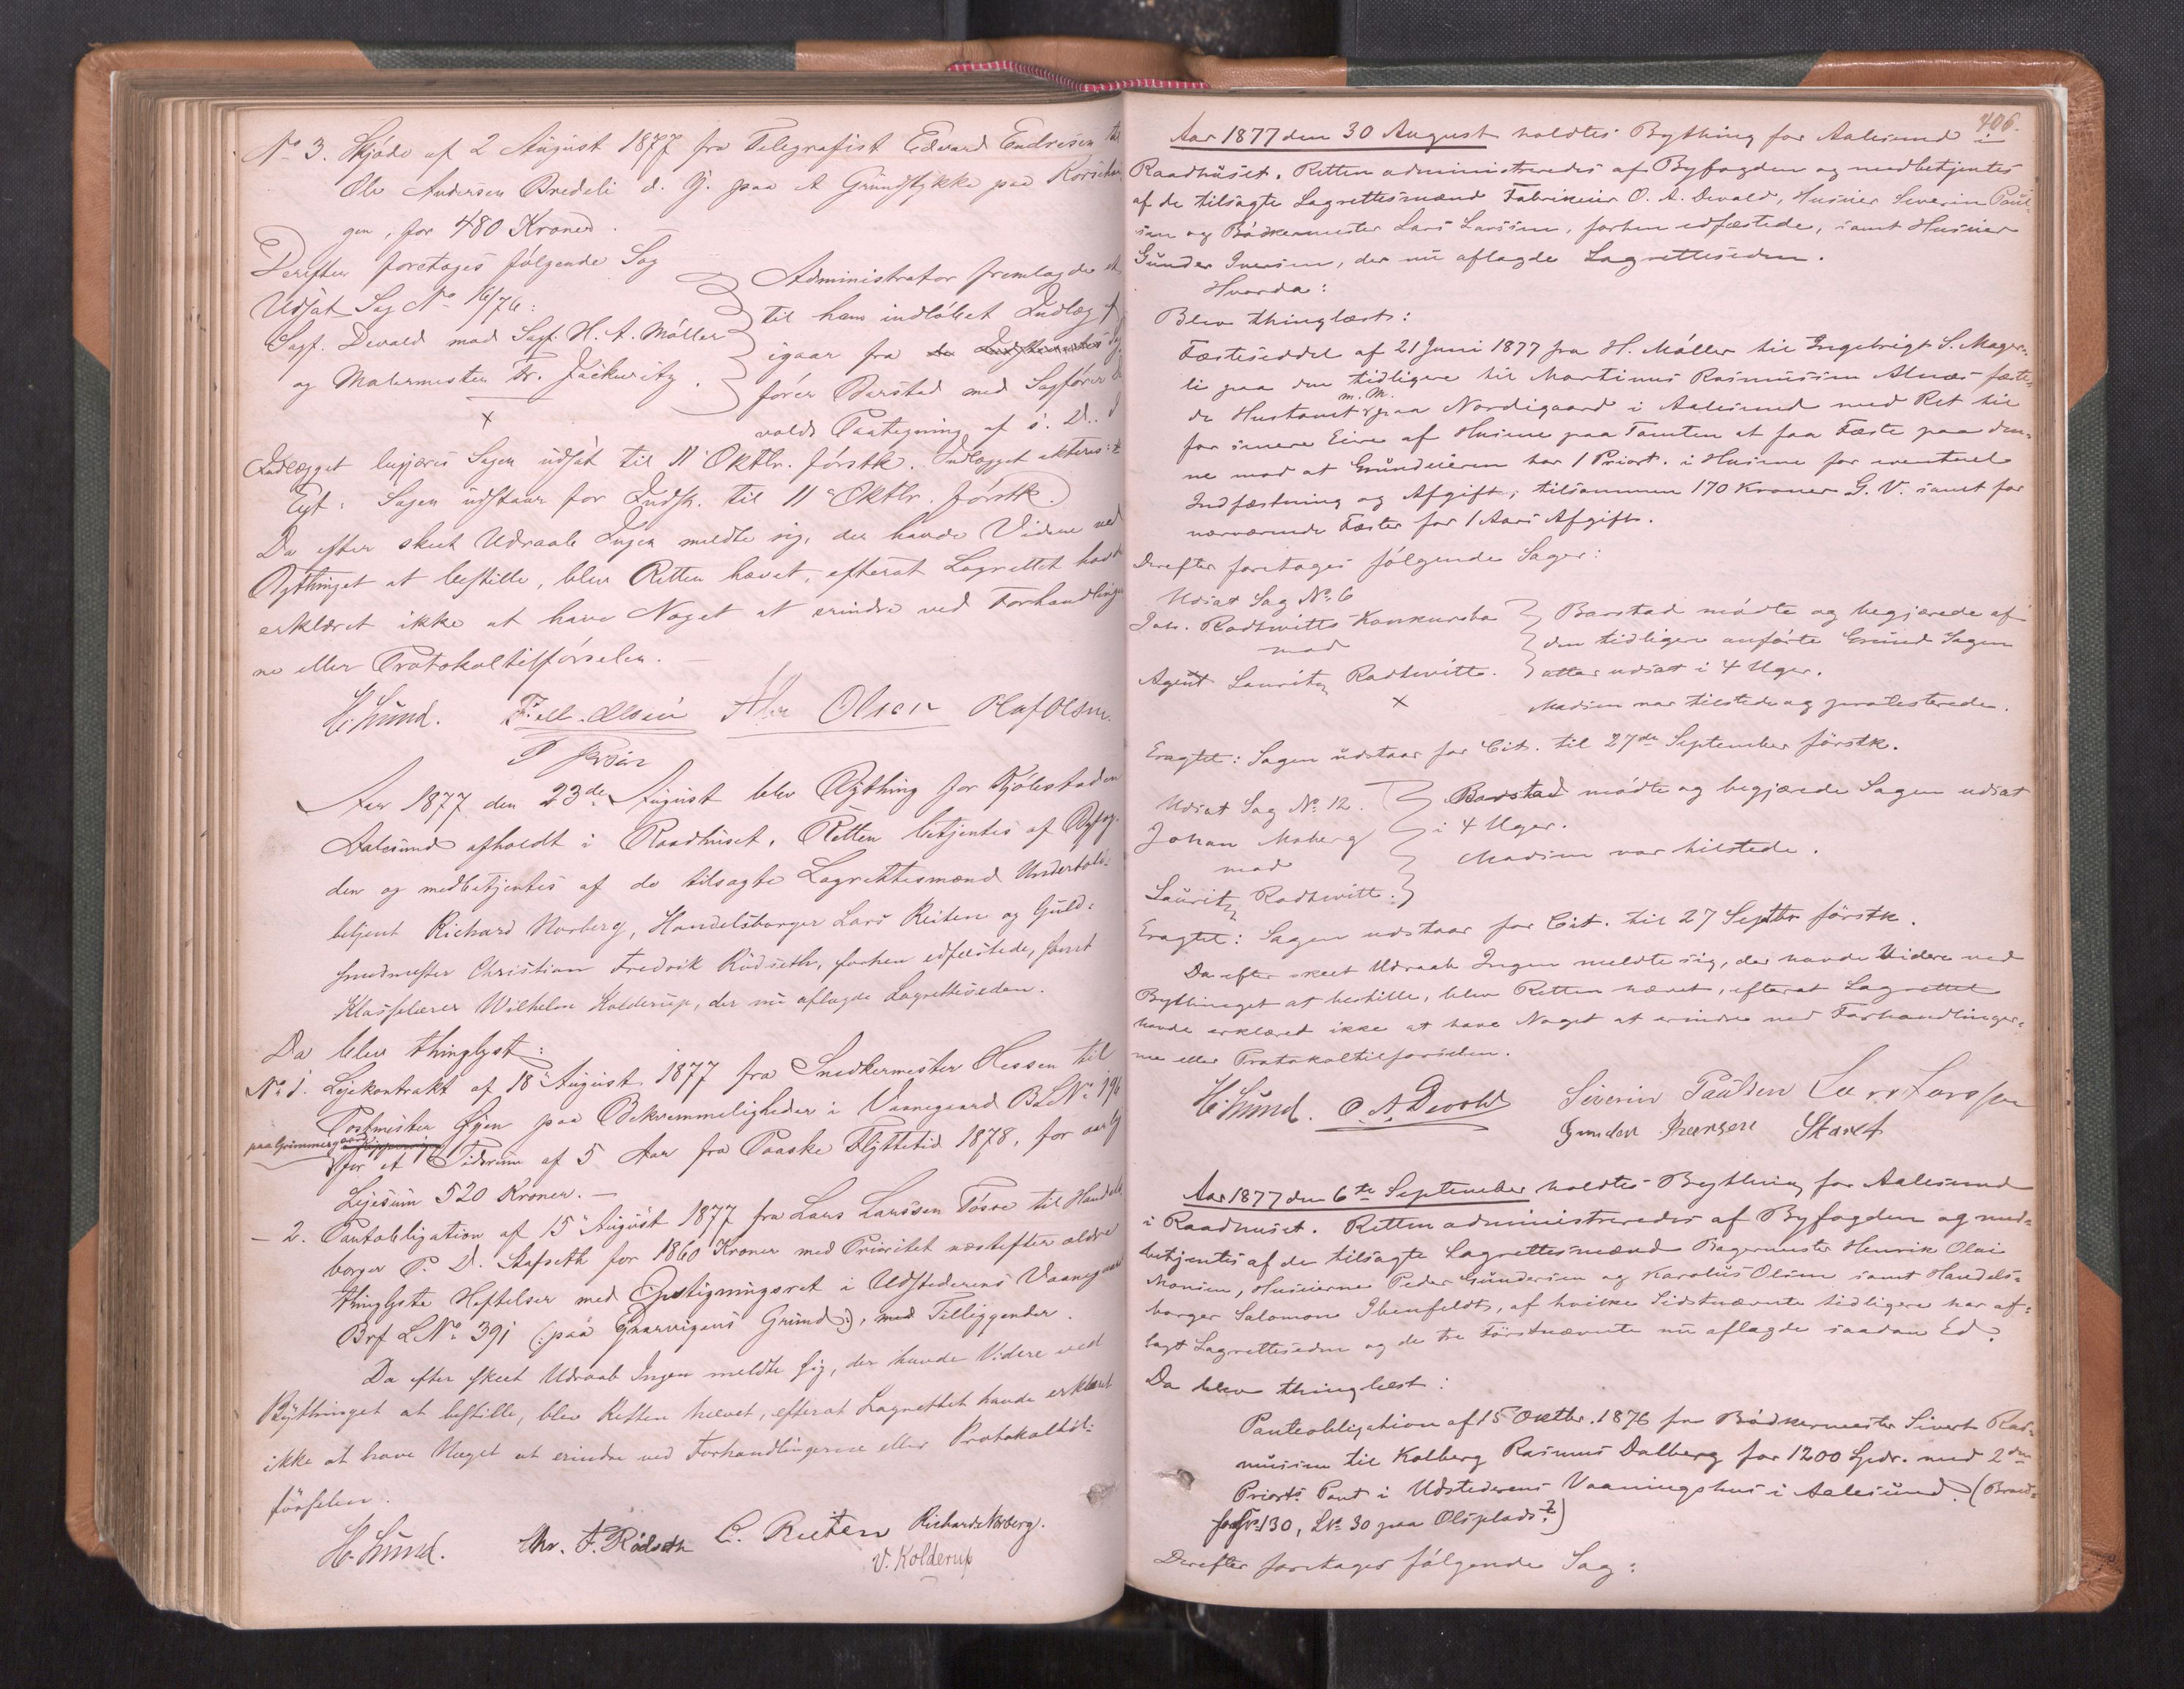 No 3. Skjøde af 2 August 1877 fra Telegrafist Edvard Endresen til
Ole Andersen Bredeli d. Y. paa et Grundstykke paa
gen, for 480 Kroner.
Derefter foretages følgende Sag
Udsat Sag No 16/76:
Sagf. Devold mod Sagf. H. A. Møller
og Malermester Fr. Jáckwitz.
Administrator fremlagde et
til ham indløbet Indlæg af
igaar fra Sag
fører Barstad med Sagfører De
volds Paategning af s. D. I
Indlægget begjæres Sagen udsat til 11 Oktbr. førstk. Indlægget akteres:
Egt: Sagen udstaar for Indst. til 11 Oktbr. førstk.
Da efter skeet Udraab Ingen meldte sig, der havde Videre ved
Bythinget at bestille, blev Retten hævet, efterat Lagrettet havde
erklæret ikke at have Noget at erindre ved Forhandlinger
ne eller Protokoltilførselen.
H. Lund. Olsen Olaf Olsen.
Aar 1877 den 23de August blev Bything for Kjøbstaden
Aalesund afholdt i Raadhuset. Retten betjentes af Byfog-
den og medbetjentes af de tilsagte Lagrettesmænd Undertold-
betjent Richard Norberg, Handelsborger Lars Reiten og Guld-
smedmester Christian Fredrik Rødseth, forhen edfæstede, samt
Klasselærer Wilhelm Kolderup, der nu aflagde Lagretteseden.
Da blev thinglyst:
No 1. Lejekontrakt af 18 August 1877 fra Snedkermester Hessen til
Postmester Øyen paa Bekvemmeligheder i Vaanegaard BLNo 196
paa Grimmergaard
for et Tidsrum af 5 Aar fra Paaske Flyttetid 1878, for aarlig
Lejesum 520 Kroner.
- 2. Pantobligation af 15 August 1877 fra Lars Larssen Tøsse til Handels
borger P. D. Stafseth for 1860 Kroner med Prioritet næstefter ældre
thinglyste Heftelser med Opstigningsret i Udstederens Vaanegaard
Brf LNo 391 (: paa Grund:), med Tilliggender.
Da efter skeet Udraab Ingen meldte sig, der havde Videre ved
Bythinget at bestille, blev Retten hævet, efterat Lagrettet havde erklæret
ikke at have Noget at erindre ved Forhandlingerne eller Protokoltil-
førselen.
H. Lund. Chr. F. Rødseth L. Reiten Richard Norberg.
V. Kolderup
406.
Aar 1877 den 30 August holdtes Bything for Aalesund i
Raadhuset. Retten administreredes af Byfogden og medbetjentes
af de tilsagte Lagrettesmænd Fabrikeier O. A. Devold, Huseier Severin Paul-
sen og Bødkermester Lars Larssen, forhen edfæstede, samt Huseier
Gunder Iversen, der nu aflagde Lagretteseden.
Hvorda:
Blev thinglæst:
Fæsteseddel af 21 Juni 1877 fra H. Møller til Ingebrigt S. Mager-
li paa den tidligere til Martinus Rasmussen Alnæs fæste-
de Hustomt m. M. paa Nordigaard i Aalesund med Ret til
for senere Eiere af Husene paa Tomten at faa Fæste paa den-
ne mod at Grundeieren har 1 Priort. i Husene for eventuel
Indfæstning og Afgift, tilsammen 170 Kroner G. V. samt for
nærværende Fæster for 1 Aars Afgift.
Derefter foretages følgende Sager:
Udsat Sag No. 6
Joh. Rødtwitts Konkursbo
mod
Agent Lauritz Radtwitt.
Barstad mødte og begjærede af
den tidligere anførte Grund Sagen
atter udsat i 4 Uger.
Madsen var tilstede og protesterede.
Eragtet: Sagen udstaar for Cit. til 27de September førstk.
Udsat Sag No. 12.
Johan Moberg
mod
Lauritz Radtwitt.
Barstad mødte og begjærede Sagen udsat
i 4 Uger.
Madsen var tilstede.
Eragtet: Sagen udstaar for Cit. til 27 Septbr førstk.
Da efter skeet Udraab Ingen meldte sig, der havde Videre ved
Bythinget at bestille, blev Retten hævet, efterat Lagrettet
havde erklæret ikke at have Noget at erindre ved Forhandlinger-
ne eller Protokoltilførselen.
H. Lund. O. A. Devold Severin Paulsen Lars Larssen
Gunder Iversen
Aar 1877 den 6te September holdtes Bything for Aalesund
i Raadhuset. Retten administreredes af Byfogden og med-
betjentes af de tilsagte Lagrettesmænd Bagermester Henrik Olai
Monsen, Huseierne Peder Gundersen og Karolus Olsen samt Handels-
borger Salomon Ibenfeldt, af hvilke Sidstnævnte tidligere har af-
lagt Lagretteseden og de tre Førstnævnte nu aflagde saadan Ed.
Da blev thinglæst:
Panteobligation af 15 Oktbr. 1876 fra Bødkermester Sivert Ras-
mussen til Kolberg Rasmus Dalberg for 1200 Spdr. med 2den
Priorts. Pant i Udstederens Vaaningshus i Aalesund. (Brand-
forsNo 130, LNo 30 paa Olsplads)
Derefter foretages følgende Sag: